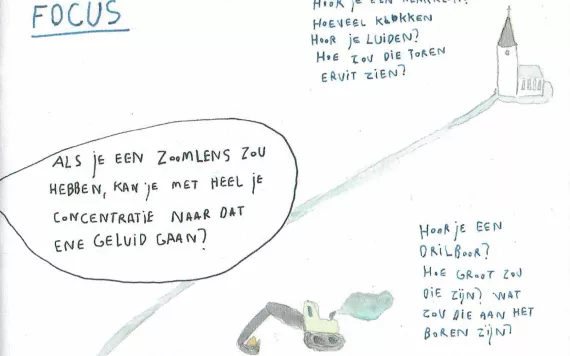 FOCUS
HOOR JE EEN
HOEVEEL KLOKKEN
HOOR JE LUIDEN?
HOE ZOU DIE TOREN
ERUIT ZIEN?
ALS JE EEN ZOOMLENS ZOU
HEBBEN, KAN JE MET HEEL JE
CONCENTRATIE NAAR DAT
ENE GELUID GAAN?
HOOR JE EEN
DRILBOOR?
HOE GROOT ZOU
DIE ZIJN? WAT
ZOU DIE AAN HET
BOREN ZIJN?